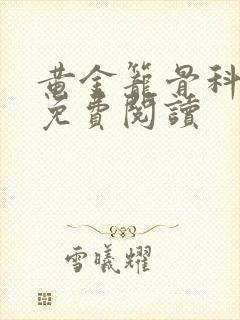 黄金籠骨科
免費閱讀
雪曦耀